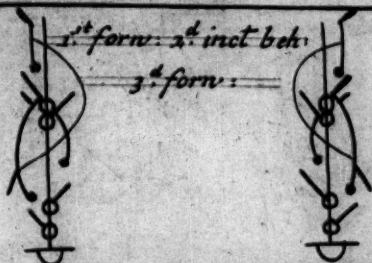 1.st forn: 2.d inct beh:
3.d forn: